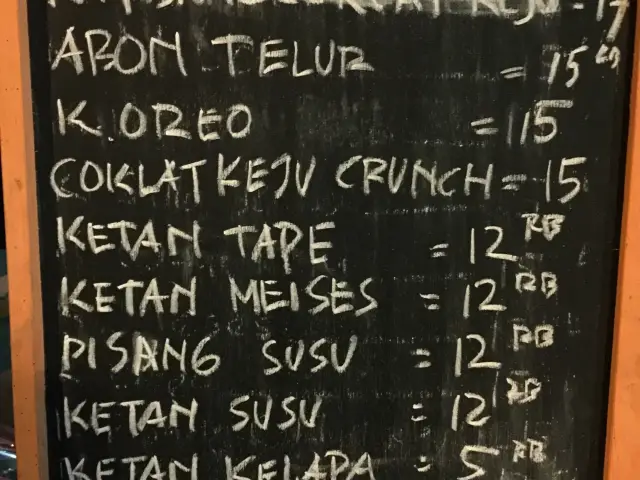 KEJU = 17
ABON TELUR = 15
K.OREO = 15
COKLAT KEJU CRUNCH = 15
KETAN TAPE = 12 RB
KETAN MEISES = 12 RB
PISANG SUSU = 12 RB
KETAN SUSU = 12 RB
KETAN KELAPA = 5 RB